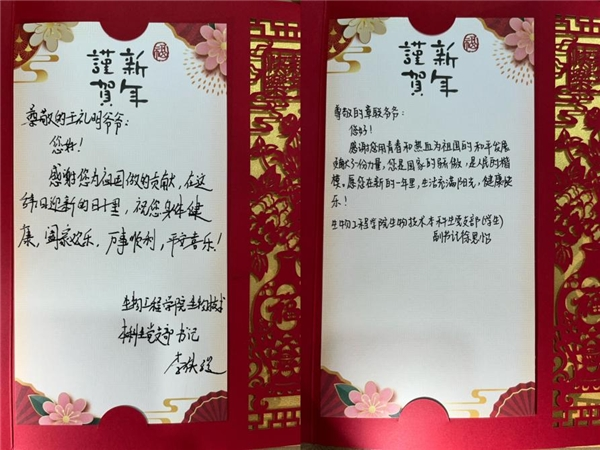 謹賀
新年
福
尊敬的王礼明爷爷：
您好！
感谢您为祖国做的贡献，在这
辞旧迎新的日子里，祝您身体健
康，阖家欢乐，万事顺利，平安喜乐！
生物工程学院生物技术
本科生党支部书记
李铁
謹賀
新年
福
尊敬的爷爷：
您好！
感谢您用青春和热血为祖国的和平发展
贡献了一份力量，您是国家的骄傲，是人民的楷
模。愿您在新的一年里，生活充满阳光，健康快
乐！
生物工程学院生物技术本科生党支部（学生）
副书记徐思